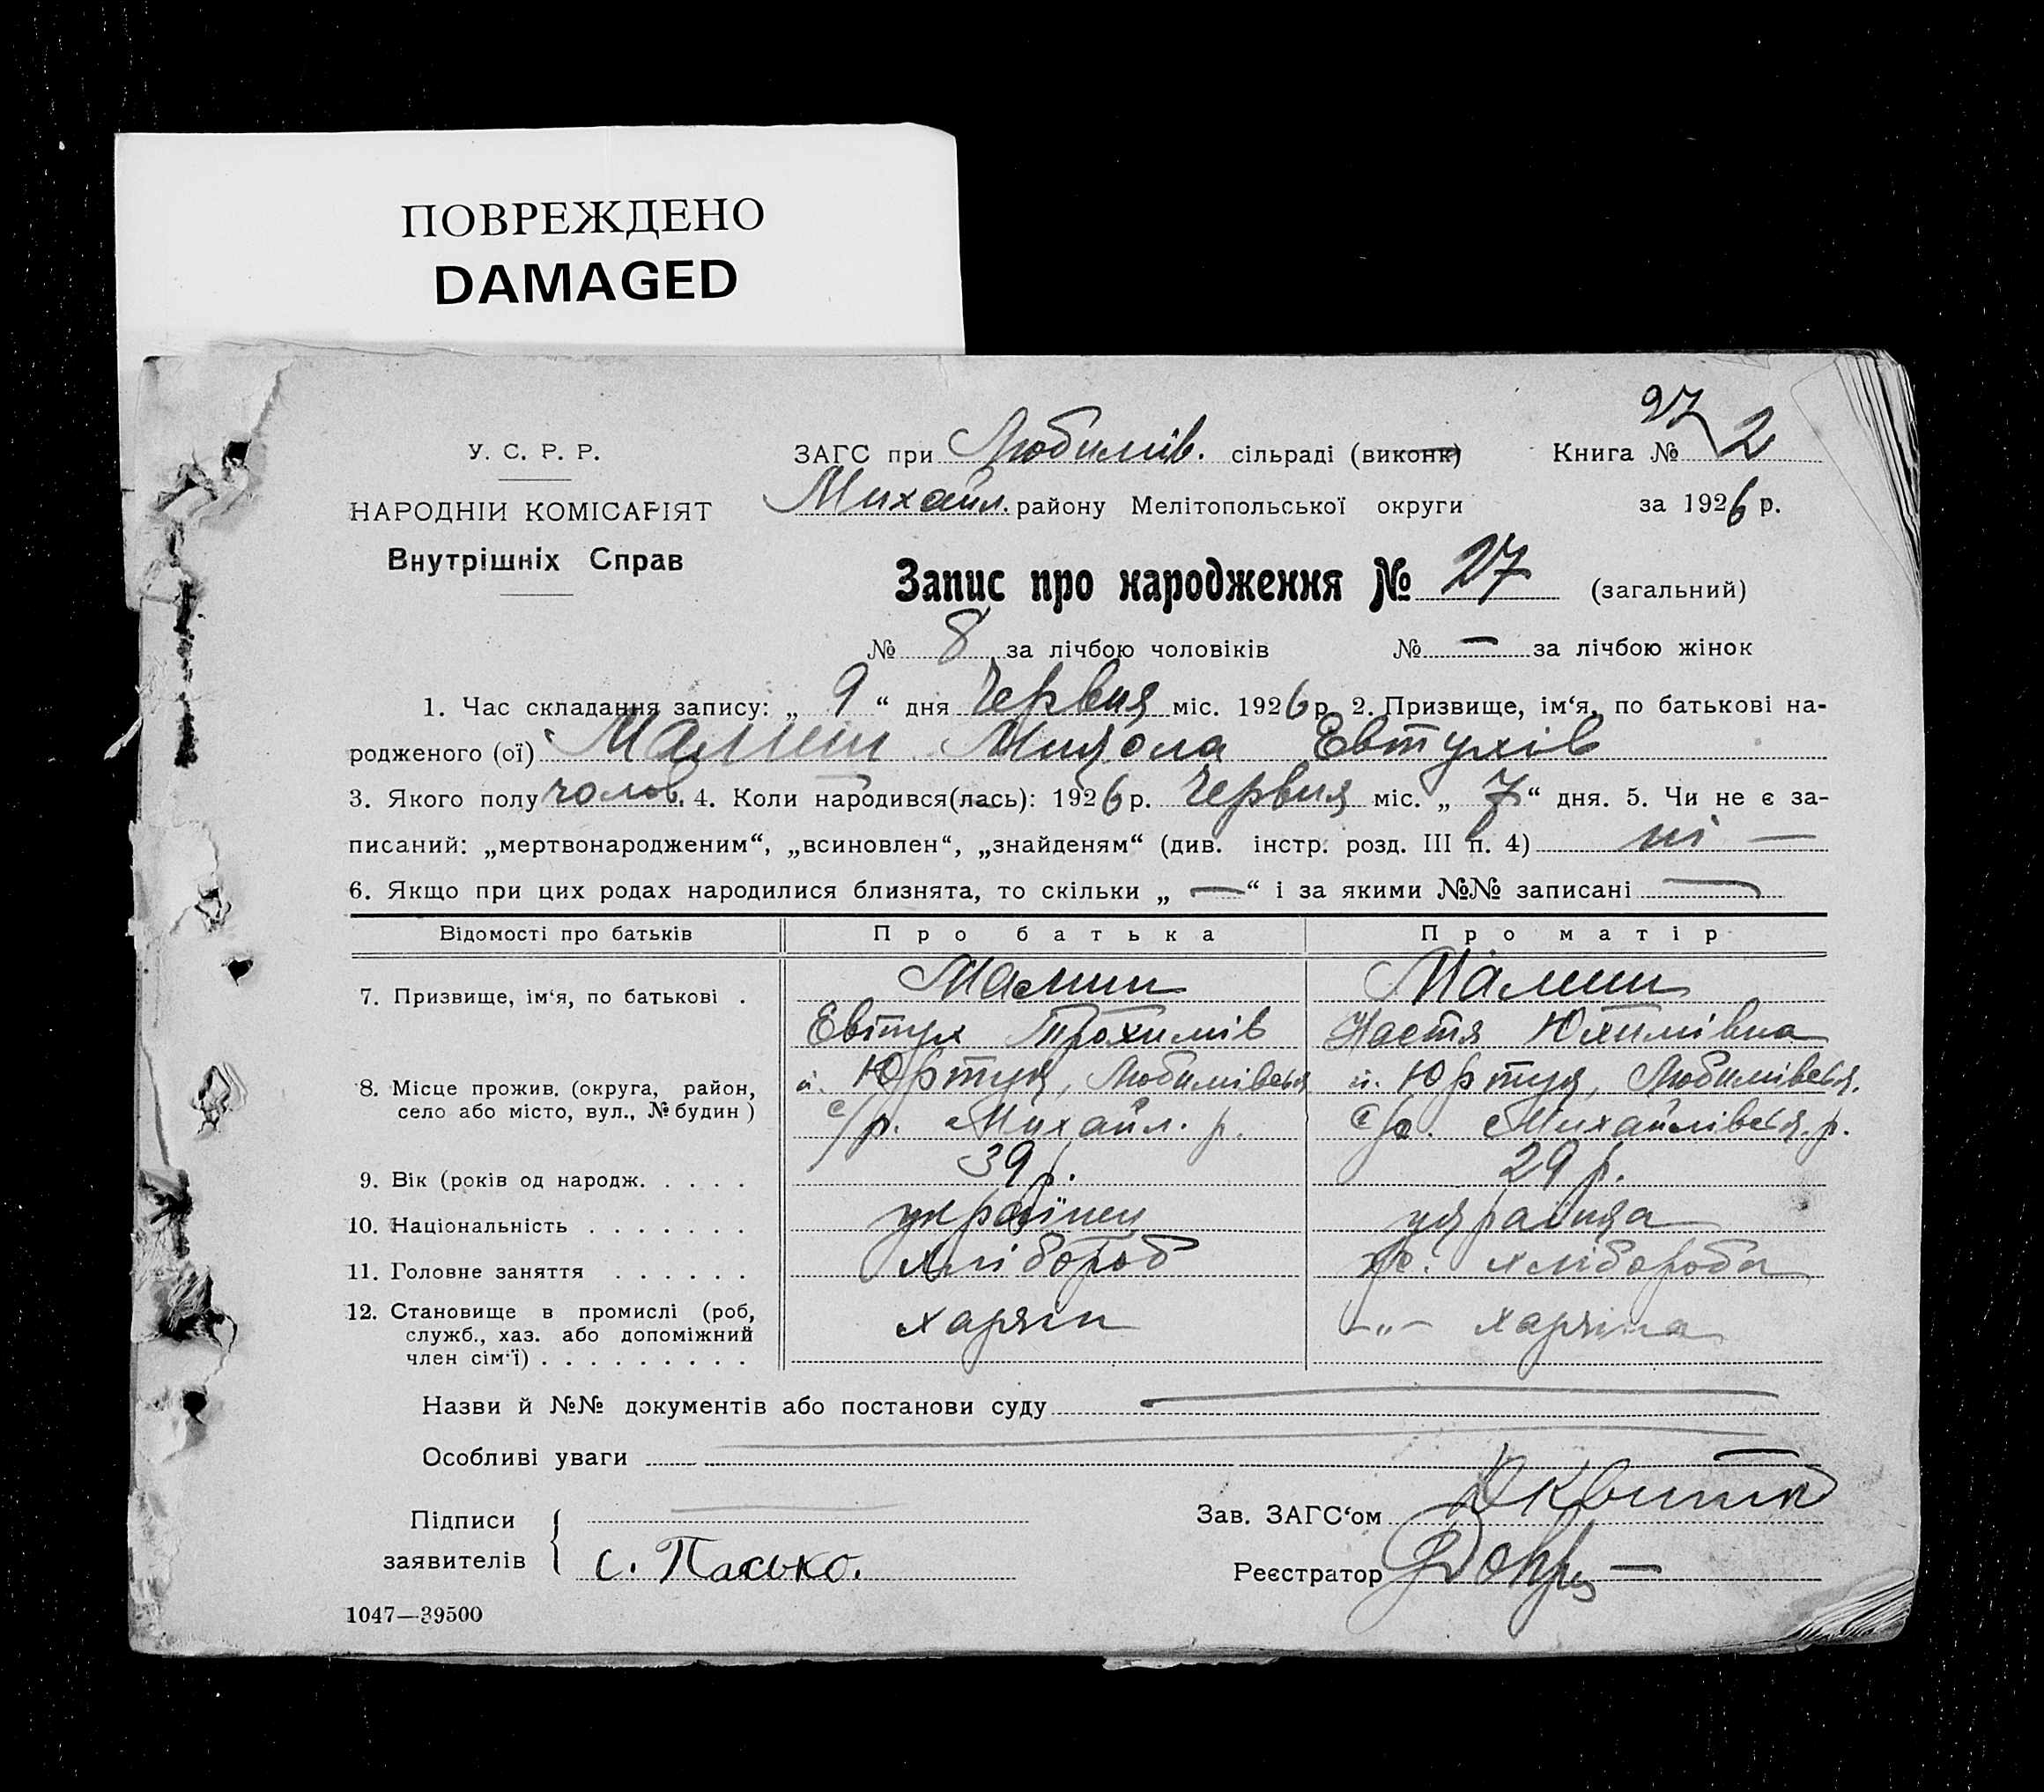 ПОВРЕЖДЕНО
DAMAGED
27
У. С. Р. Р.
ЗАГС при Любимів. сільраді (виконк)
Книга № 2
НАРОДНІЙ КОМІСАРІЯТ
Михайл. району Мелітопольської округи
за 1926 р.
Внутрішніх Справ
Запис про народження № 27 (загальний)
№ 8 за лічбою чоловіків № — за лічбою жінок
1. Час складання запису: „ 9 “ дня Червня міс. 1926 р. 2. Призвище, ім‘я, по батькові на-
родженого (ої) Малиш Микола Евтухів
3. Якого полу чолов. 4. Коли народився(лась): 1926 р. Червня міс. „ 7 “ дня. 5. Чи не є за-
писаний: „мертвонародженим“, „всиновлен“, „знайденям“ (див. інстр. розд. III п. 4) ні —
6. Якщо при цих родах народилися близнята, то скільки „ — “ і за якими №№ записані —
Відомості про батьків Про батька Про матір
7. Призвище, ім‘я, по батькові . Малиш Малиш
Евтух Трохимів Настя Юхимівна
8. Місце прожив. (округа, район, Юртук, Любимівськ Юртук, Любимівськ.
село або місто, вул., № будин ) с/р. Михайл. р. с/р. Михайлівськ. р.
9. Вік (років од народж. . . . . 39 р. 29 р.
10. Національність . . . . . . . українец українка
11. Головне заняття . . . . . . хлібороб хлібороба
12. Становище в промислі (роб, харчін -„- харчіна
служб., хаз. або допоміжний
член сім‘ї) . . . . . . . . .
Назви й №№ документів або постанови суду
Особливі уваги
Підписи
заявителів
с. Пасько.
Зав. ЗАГС‘ом
Реєстратор
1047—39500